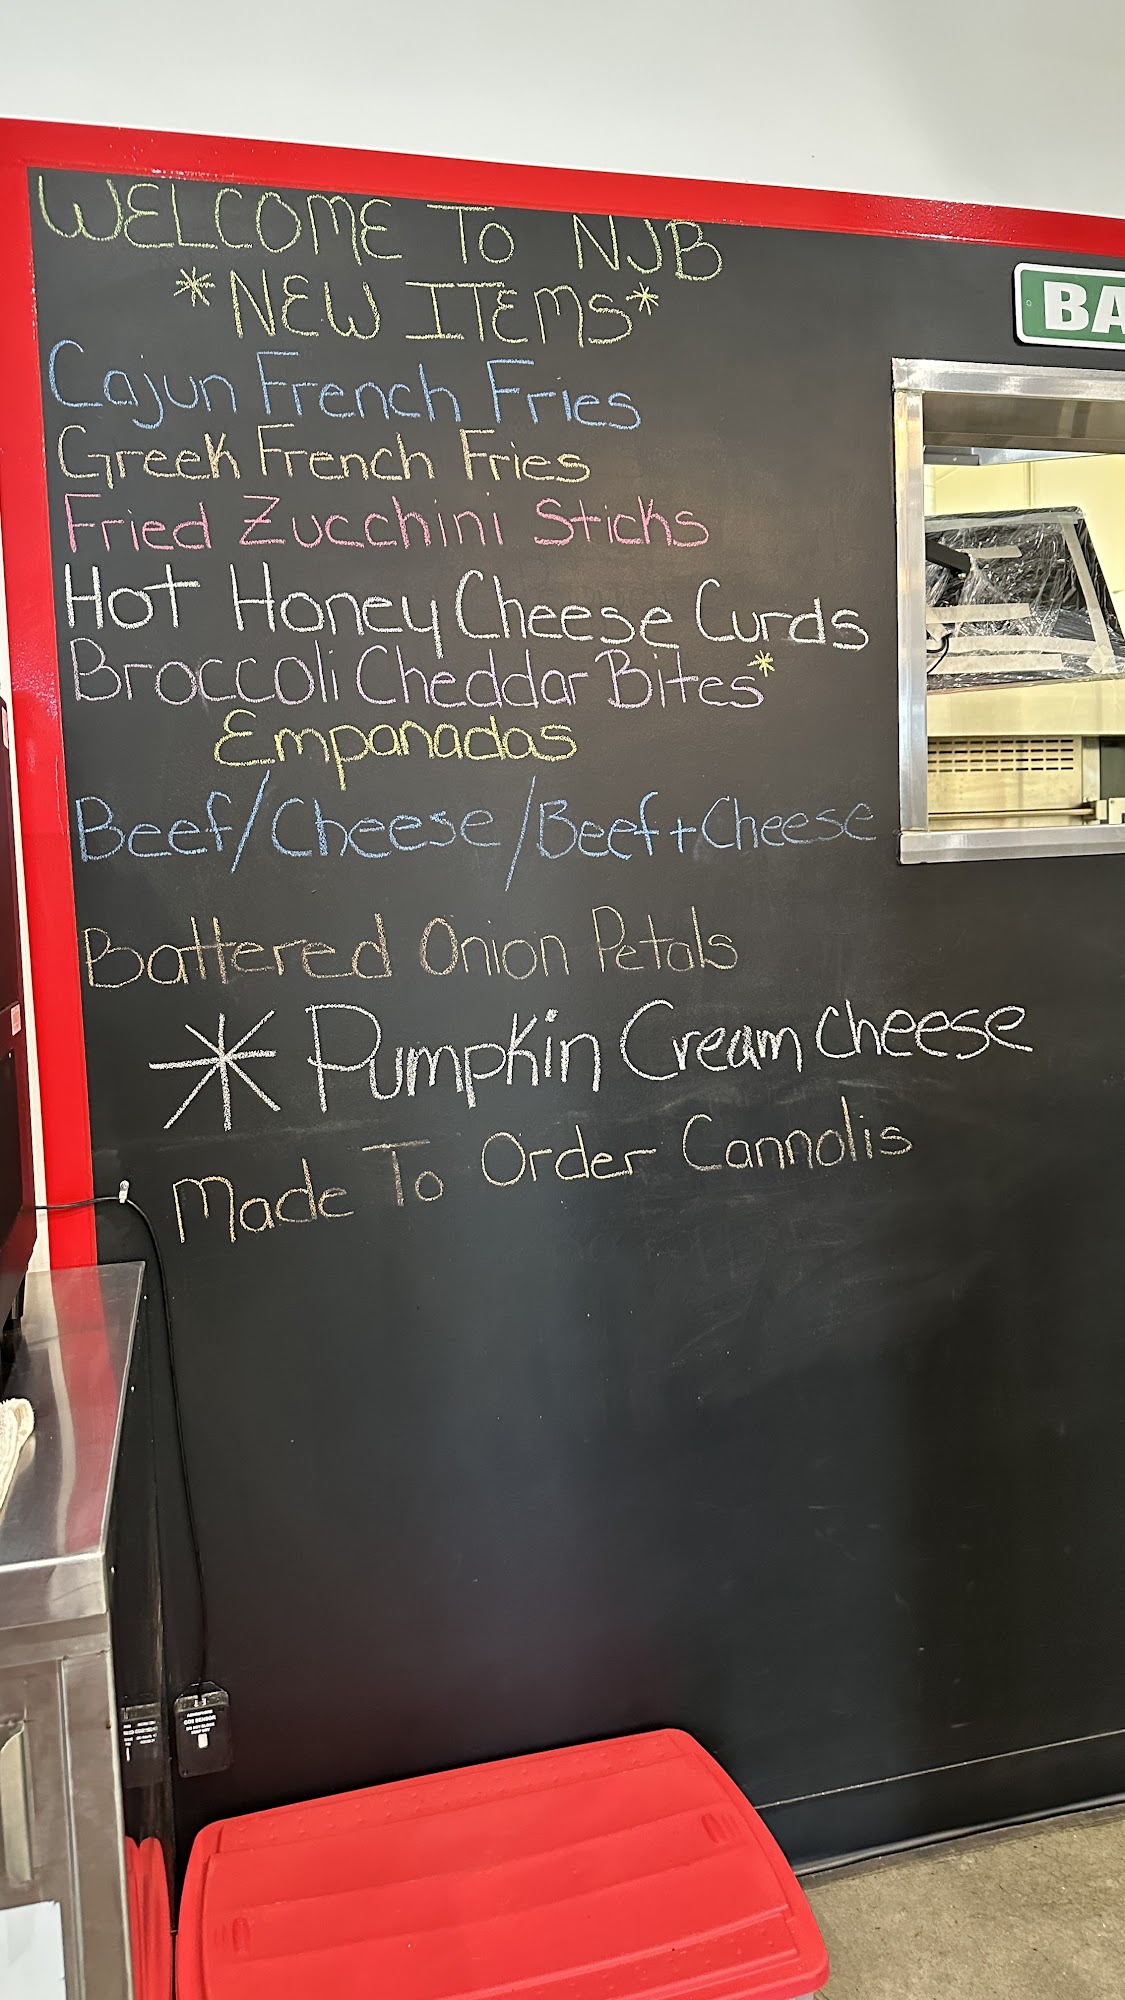 WELCOME TO NJB
*NEW ITEMS*
Cajun French Fries
Greek French Fries
Fried Zucchini Sticks
Hot Honey Cheese Curds
Broccoli Cheddar Bites*
Empanadas
Beef/Cheese/Beef+Cheese
Battered Onion Petals
* Pumpkin Cream Cheese
Made To Order Cannolis
BA